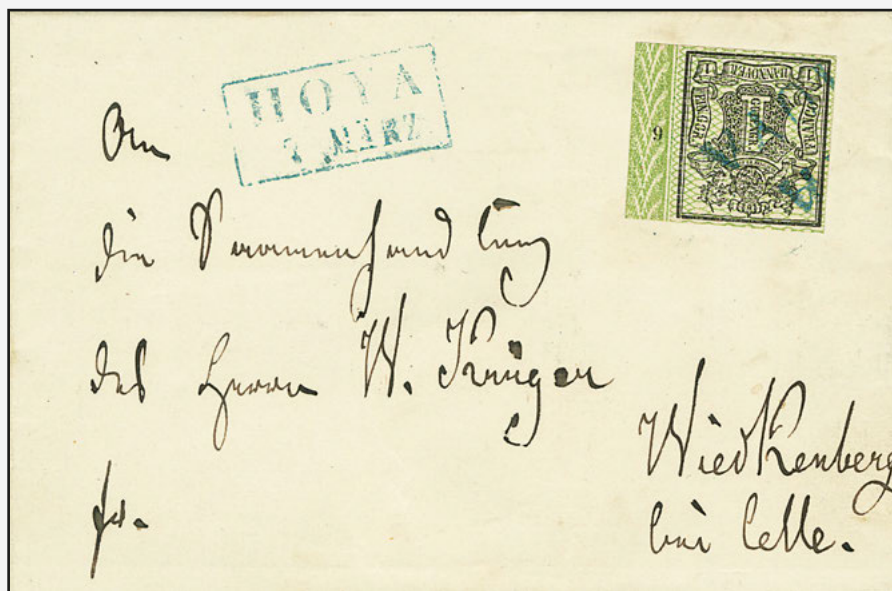 HOYA
7 MÄRZ
HANNOVER
1
1
9
An
die Saamenhandlung
des Herrn W. Krüger
fr.
Wiedkenberg
bei Celle.